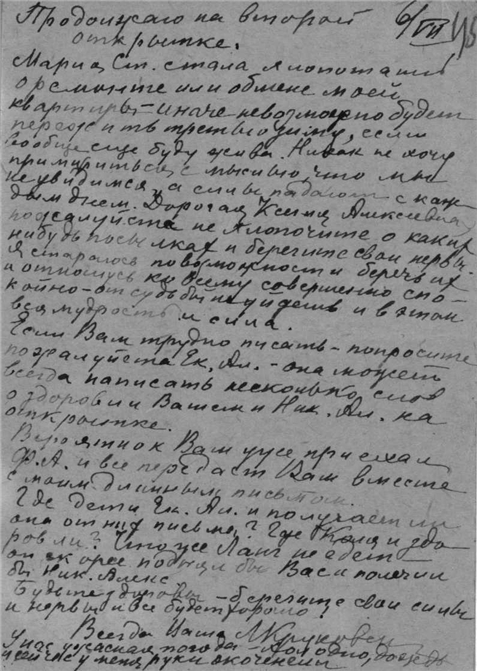 Продолжаю на второй 6/VII 45
открытке.
Мария Ст. стала хлопотать
о ремонте или обмене моей
квартиры – иначе невозможно будет
пережить третью зиму, если
вообще еще буду жива. Никак не хочу
примириться с мыслью, что мы
не увидимся, а силы падают с каж-
дым днем. Дорогая Ксения Алексеевна,
пожалуйста не хлопочите о каких
нибудь посылках и берегите свои нервы.
Я стараюсь по возможности беречь их
и отношусь ко всему совершенно спо-
койно – от судьбы не уйдешь и в этом
вся мудрость и сила.
Если Вам трудно писать – попросите
пожалуйста Ек. Ал. – она может
всегда написать несколько слов
о здоровии Вашем и Ник. Ал. на
открытке.
Вероятно к Вам уже приехал
Ф.А. и все передаст Вам вместе
с моим длинным письмом.
Где дети Ек. Ал. и получает ли
она от них письма? Где Коля и здо-
ров ли? Что же Ланг не едет
он скорее поднял бы Вас и полечил
бы Ник. Алекс.
Будьте здоровы – берегите свои силы
и нервы и все будет хорошо!
Всегда Ваша
У нас ужасная погода – холодно, дождь
и сейчас у меня руки окоченели